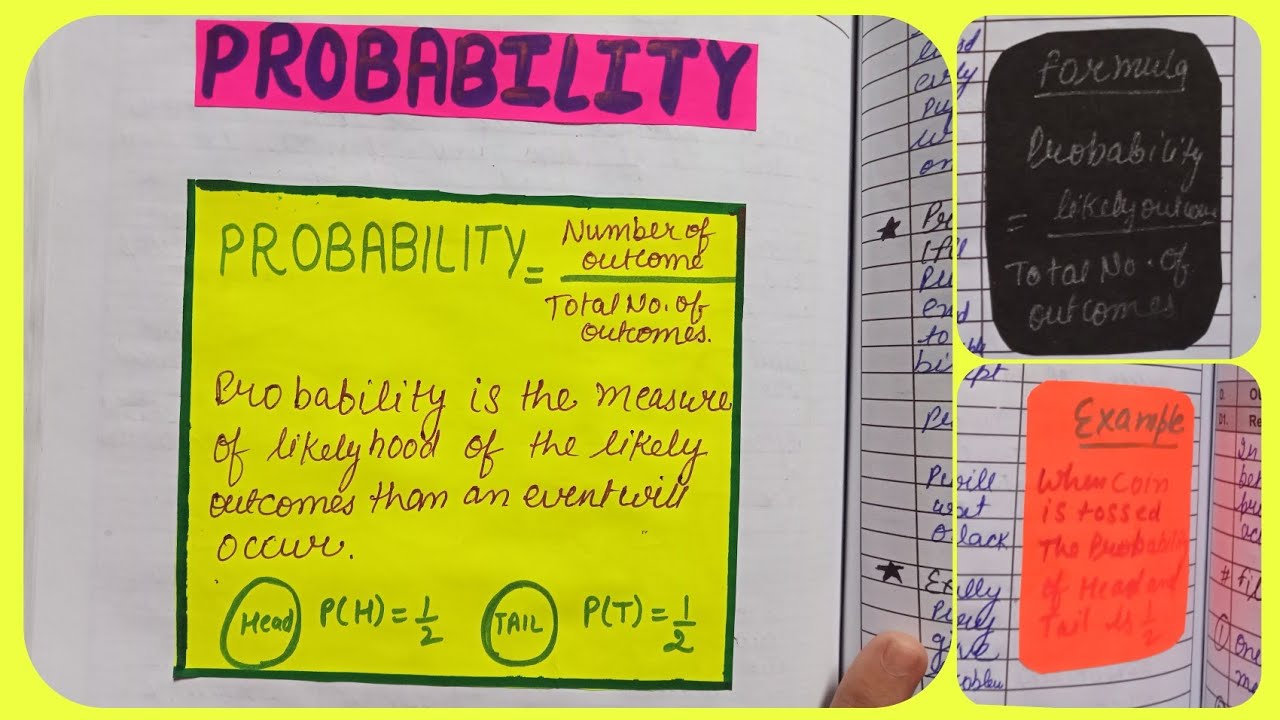 PROBABILITY
PROBABILITY =
Number of
outcome
Total No. of
outcomes.
Probability is the measure
of likelyhood of the likely
outcomes than an event will
occur.
Head P(H) = 1/2 TAIL P(T) = 1/2
early
on
end
to
Exlly
give
Formula
Probability
= likely outcome
Total No. of
outcomes
Example
When Coin
is tossed
The Probability
of Head and
Tail is 1/2
One